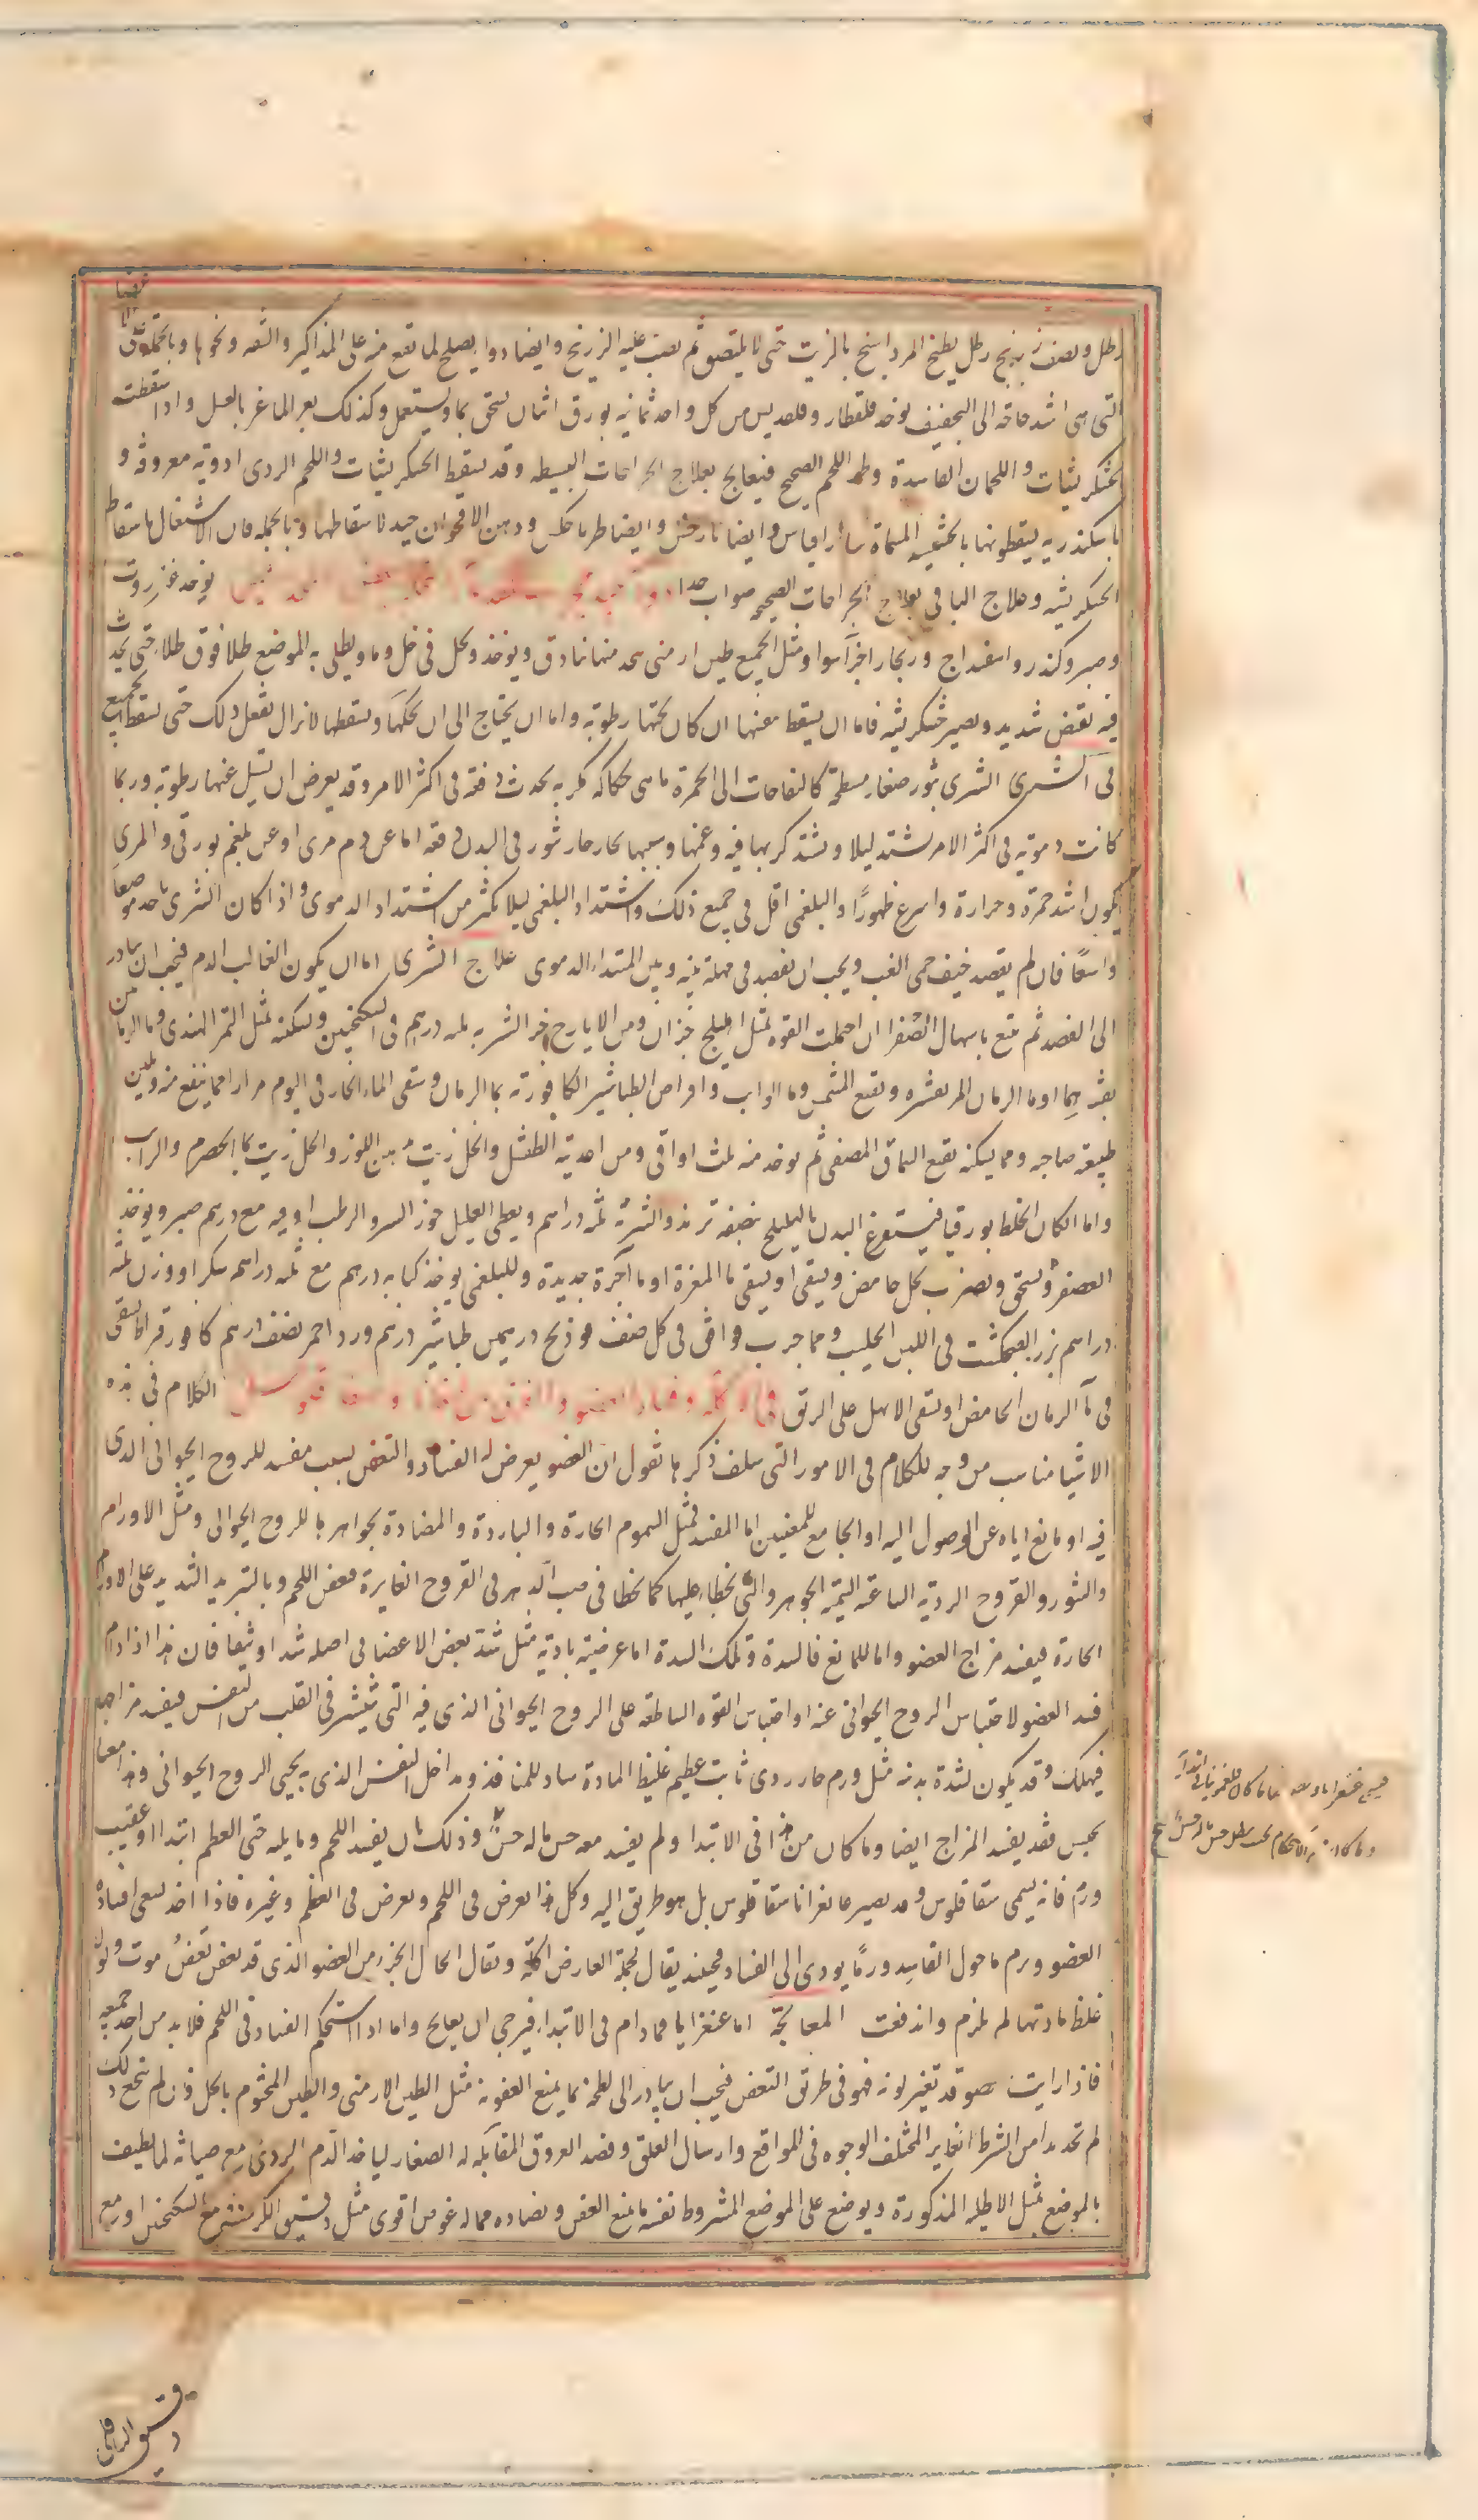 رطل ونصف زرنيخ رطل يطبخ المرداسنج بالزيت حتى لا يلتصق ثم يصب عليه الزرنيخ وايضا دواء يصلح لما يقع منه على المذاكير والشفه ونحوها وبالجمله
التى هى اشد حاجة الى التجفيف يوخذ قلقطار وقلقديس من كل واحد ثمانيه بورق اثنان يسحق بماء ويستعمل وكذلك بعر الماعز بالعسل واذا سقطت
الخشكريشات واللحمان الفاسدة وظهر اللحم الصحيح فيعالج بعلاج الجراحات البسيطه وقد يسقط الخشكريشات واللحم الردى ادوية معروفة و
باسكندريه يسقطونها بالحشيشه المسماة وايضا ودهن الاقحوان جيد لاسقاطها وبالجمله فان الاشتغال باسقاط
الخشكريشه وعلاج الباقى بعلاج الجراحات الصحيحه صواب جدا يوخذ عنزروت
وصبر وكندر واسفيداج وزنجار اجزآ سوا ومثل الجميع طين ارمنى يتخذ منها بنادق ويوخذ ويحل فى خل وماء ويطلى به الموضع طلا فوق طلاء حتى يحدث
فيه تقبض شديد ويصير خشكريشه فاما ان يسقط بنفسها ان كان تحتها رطوبة واما ان يحتاج الى ان تحكها وتسقطها لا تزال تفعل ذلك حتى يسقط الجميع
فى الشرى الشرى بثور صغار مسطحة كالنفاحات الى الحمرة ما هى حكاكه مكربه يحدث دفعة فى اكثر الامر وقد يعرض ان تسيل عنها رطوبة وربما
كانت دموية فى اكثر الامر يشتد ليلا ويشتد كربها فيه وغمها وسببها بخار حار يثور فى البدن دفعه اما عن دم مرى او عن بلغم بورقى والمرى
يكون اشد حمرة وحرارة واسرع ظهورًا والبلغمى اقل فى جميع ذلك واشتداد البلغمى ليلا اكثر من اشتداد الدموى واذا كان الشرى ياخذ موضعا
واسعًا فان لم يفصد خيف حمى الغب ويجب ان يفصد فى مهلة بينه وبين المبتداء الدموى علاج الشرى اما ان يكون الغالب الدم فيجب ان يبادر
الى الفصد ثم يتبع باسهال الصفرا ان احتملت القوه بمثل الهليلج جزان ومن الايارج جزء الشربه ثلثه دراهم فى السكنجبين ويسكنه بمثل التمر الهندى وماء الرمان من
بقشرهما او ماء الرمان المر بقشره ونقع المشمش وماء الراب واقراص الطباشير الكافورية بماء الرمان وسقى الماء الحار فى اليوم مرارا مما ينفع منه ويلين
طبيعة صاحبه ومما يسكنه نقيع السماق المصفى ثم يوخذ منه ثلث اواقى ومن اغذيته الطفشل والخل زيت بدهن اللوز والخل زيت بماء الحصرم والراب
واما ان كان الخلط بورقيا فيستفرغ البدن بالهليلج بنصفه تربذ والشربة ثلثه دراهم ويعطى العليل جوز السرو الرطب اوقيه مع درهم صبر ويوخذ
العصفر ويسحق ويضرب بخل حامض ويسقى او يسقى ماء المغرة او ماء آجرة جديدة وللبلغمى يوخذ كبابه درهم مع ثلثه دراهم سكر او وزن ثلثه
دراهم بزر الفنجنكشت فى اللبن الحليب ومما جرب ووافق فى كل صنف فوذنج درهمين طباشير درهم ورد احمر نصف درهم كافور قيراط يسقى
فى مآ الرمان الحامض او يسقى الابهل على الريق الكلام فى هذه
الاشيا مناسب من وجه للكلام فى الامور التى سلف ذكرها نقول ان العضو يعرض له الفساد والتعفن بسبب مفسد للروح الحيوانى الذى
فيه او مانع اياه عن الوصول اليه او الجامع للمعنيين اما المفسد فمثل السموم الحارة والباردة والمضادة بجواهرها للروح الحيوانى ومثل الاورام
والبثور والقروح الردية الساعية السمية الجوهر والتى يخطاء عليها كما يخطا فى صب الدهن فى القروح الغايرة فعفن اللحم وبالتبريد الشديد على الاورام
الحارة فيفسد مزاج العضو واما المانع فالسدة وتلك السدة اما عرضية بادية مثل شد بعض الاعضا فى اصله شدا وثيقا فان هذا اذا دام
فسد العضو لاحتباس الروح الحيوانى عنه او احتباس القوه الساطعه على الروح الحيوانى الذى فيه التى تنتشر فى القلب من النفس فيفسد مزاجه
فيهلك وقد يكون لشدة بدنه مثل ورم حار ردى ثابت عظيم غليظ المادة ساد للمنافذ ومداخل النفس الذى به يحيى الروح الحيوانى وهذا معما
يحبس فقد يفسد المزاج ايضا وما كان من هذا فى الابتدا ولم يفسد معه حس ما له حس وذلك بان يفسد اللحم وما يليه حتى العظم ابتدا او عقيب
ورم فانه يسمى سقاقلوس وقد يصير غانغرانا سقاقلوس بل هو طريق اليه وكل هذا يعرض فى اللحم ويعرض فى العظم وغيره فاذا اخذ يسعى افساده
العضو وورم ما حول الفاسد ورمًا يودى الى الفساد فحينئذ يقال لجملة العارض اكله ويقال لحال الجزء من العضو الذى قد تعفن تعفنُ موت ولولا
غلظ مادتها لم يلزم واندفعت المعالجة اما غنغرايا فما دام فى الابتداء فيرجى ان يعالج واما اذا استحكم الفساد فى اللحم فلا بد من اخذ جميعه
فاذا رايت عضو قد تغير لونه فهو فى طريق التعفن فيجب ان يبادر الى لطخه بما يمنع العفونة مثل الطين الارمنى والطين المختوم بالخل فان لم ينجع ذلك
لم تجد بدا من الشرط الغاير المختلف الوجوه فى المواقع وارسال العلق وفصد العروق المقابله له الصغار لياخذ الدم الردى مع صيانة لما يطيف
بالموضع بمثل الاطليه المذكورة ويوضع على الموضع المشروط نفسه ما يمنع العفن ويضاده مما له غوص اقوى مثل دقيق الكرسنه مع السكنجبين او مع
دقيق الباقلى